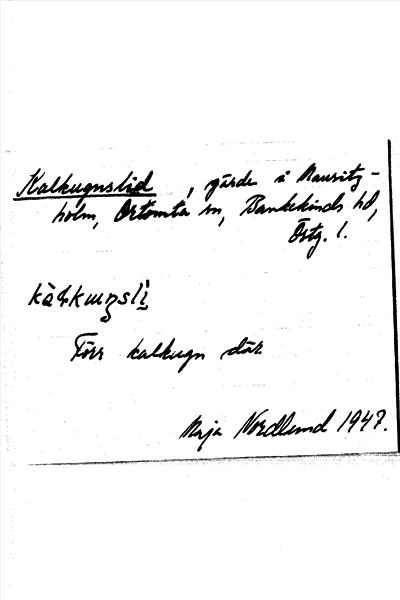 Kalkugnslid, gärde i Mauritz-
holm, Örtomta sn, Bankekinds hd,
Östg. l.
Förr kalkugn där
Maja Nordlund 1947.